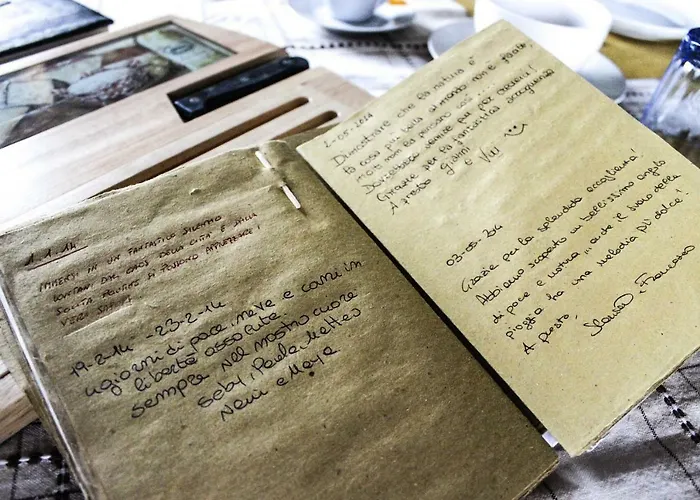 1.1.14
IMMERSI IN UN FANTASTICO SILENZIO
LONTANI DAL CAOS DELLA CITTA' E DALLA
SOLITA ROUTINE SI POSSONO APPREZZARE I
VERI
19-2-14 - 23-2-14
4 giorni di pace, neve e cani in
libertà assoluta.
sempre nel nostro cuore
Seby, Paola, Matteo
Neve e Maya
2-05-2014
Dimostrare che la natura è
la cosa più bella al mondo non è facile
molti non la pensano così...
Dovrebbero venire qui per crederci!
Grazie per la fantastica accoglienza
A presto gianni e Viii
03-05-2014
Grazie per la splendida accoglienza!
Abbiamo scoperto un bellissimo angolo
di pace e natura... anche il suono della
pioggia ha una melodia più dolce!
A presto, Francesca